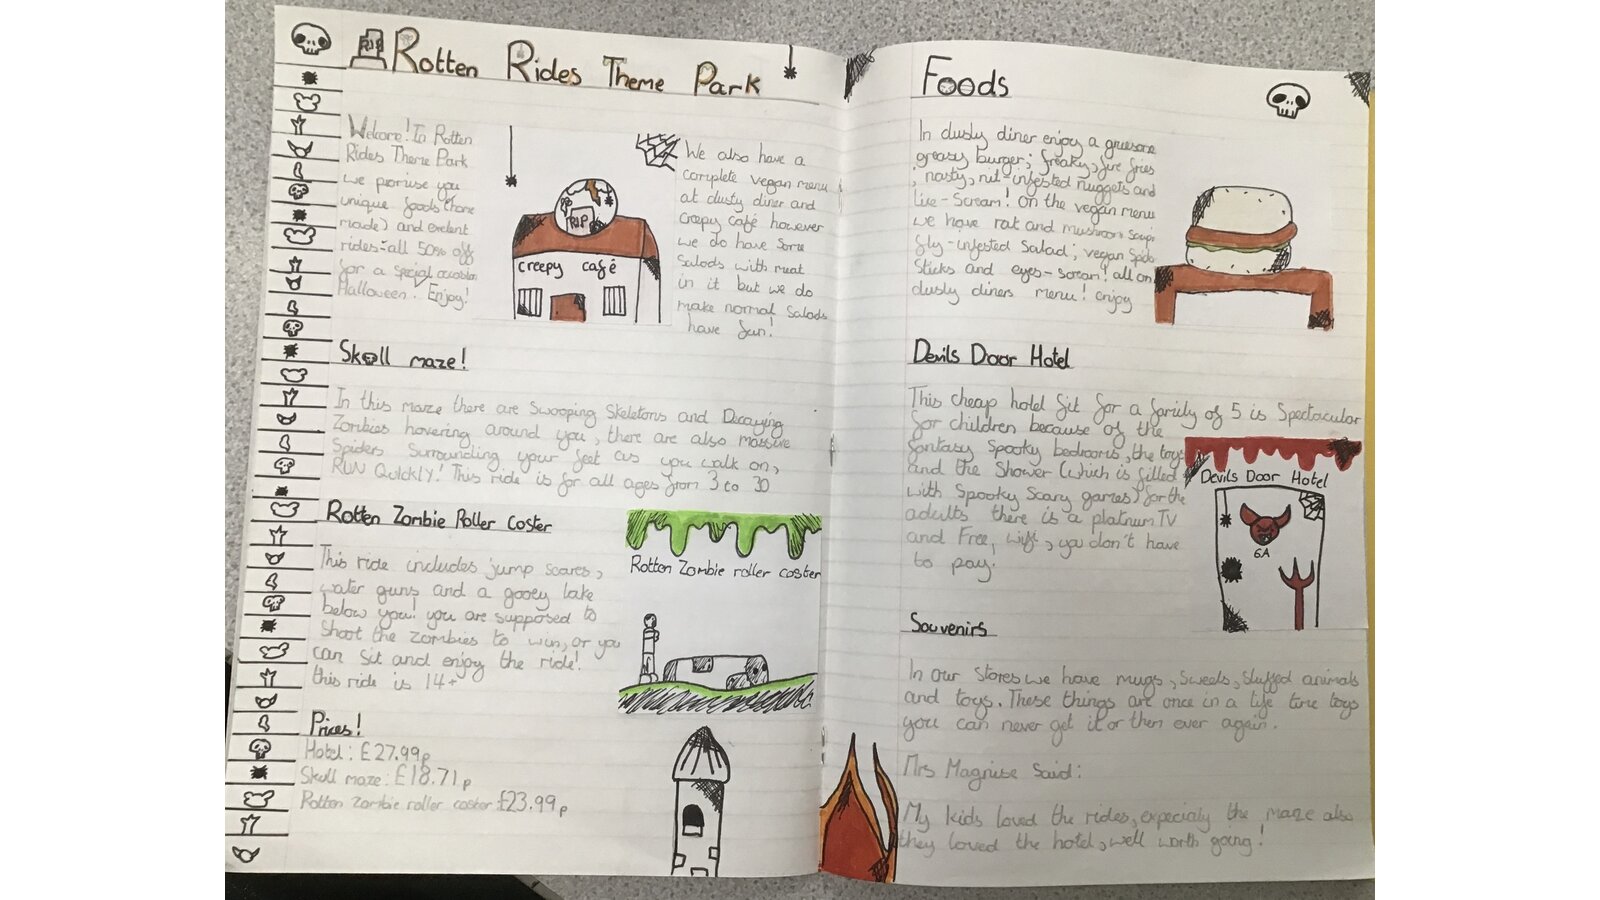 RIP Rotten Rides Theme Park
Welcome! In Rotten
Rides Theme Park
we promise you
unique foods (home
made) and exelent
rides-all 50% off
for a special occasion
Halloween. Enjoy!
RIP
creepy café
We also have a
complete vegan menu
at dusty diner and
Creepy café however
we do have some
Salads with meat
in it but we do
make normal salads
have fun!
Skull maze!
In this maze there are Swooping Skeletons and Decaying
Zombies hovering around you, there are also massive
Spiders Surrounding your feet as you walk on,
RUN Quickly! This ride is for all ages from 3 to 30
Rotten Zombie Roller Coster
This ride includes jump scares,
water guns and a gooey lake
below you! you are supposed to
Shoot the Zombies to win, or you
can sit and enjoy the ride!
this ride is 14+
Rotten Zombie roller coster
Prices!
Hotel: £27.99p
Skull maze: £18.71p
Rotten zombie roller coster £23.99p
Foods
In dusty diner enjoy a gruesome
greasy burger; freaky, fire fries
; nasty, nut-infested nuggets and
live-scream! On the vegan menu
we have rat and mushroom soup;
fly-infested salad; vegan
Sticks and eyes-scream! all on
dusty diners menu! enjoy
Devils Door Hotel
This cheap hotel fit for a family of 5 is Spectacular
for children because of the
fantasy Spooky bedrooms, the toys
and the Shower (which is filled
with Spooky Scary games) for the
adults there is a platnum TV
and Free, wifi, you don't have
to pay.
Devils Door Hotel
6A
Souvenirs
In our stores we have mugs, sweets, stuffed animals
and toys. These things are once in a life time toys
you can never get it or then ever again.
Mrs Magnise Said:
My kids loved the rides, expecialy the maze also
they loved the hotel, well worth going!